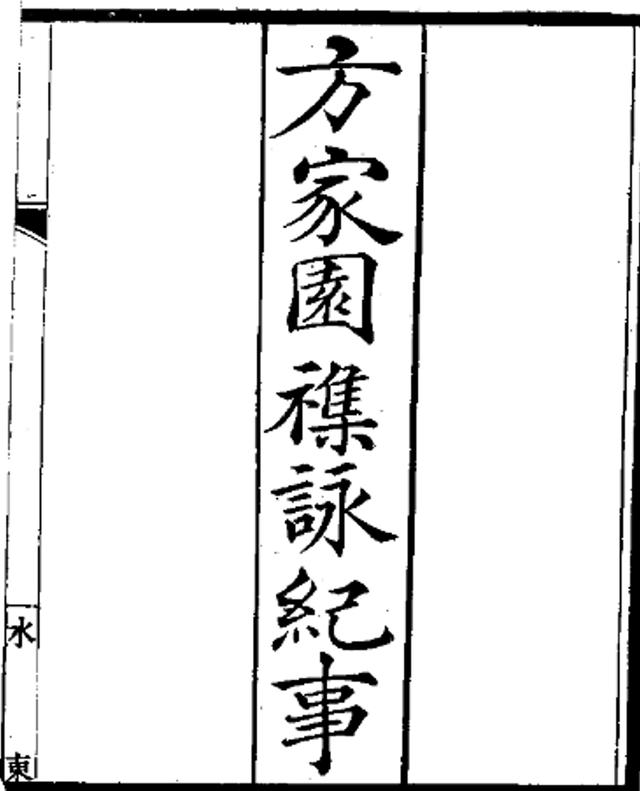 方家園襍詠紀事
水
東